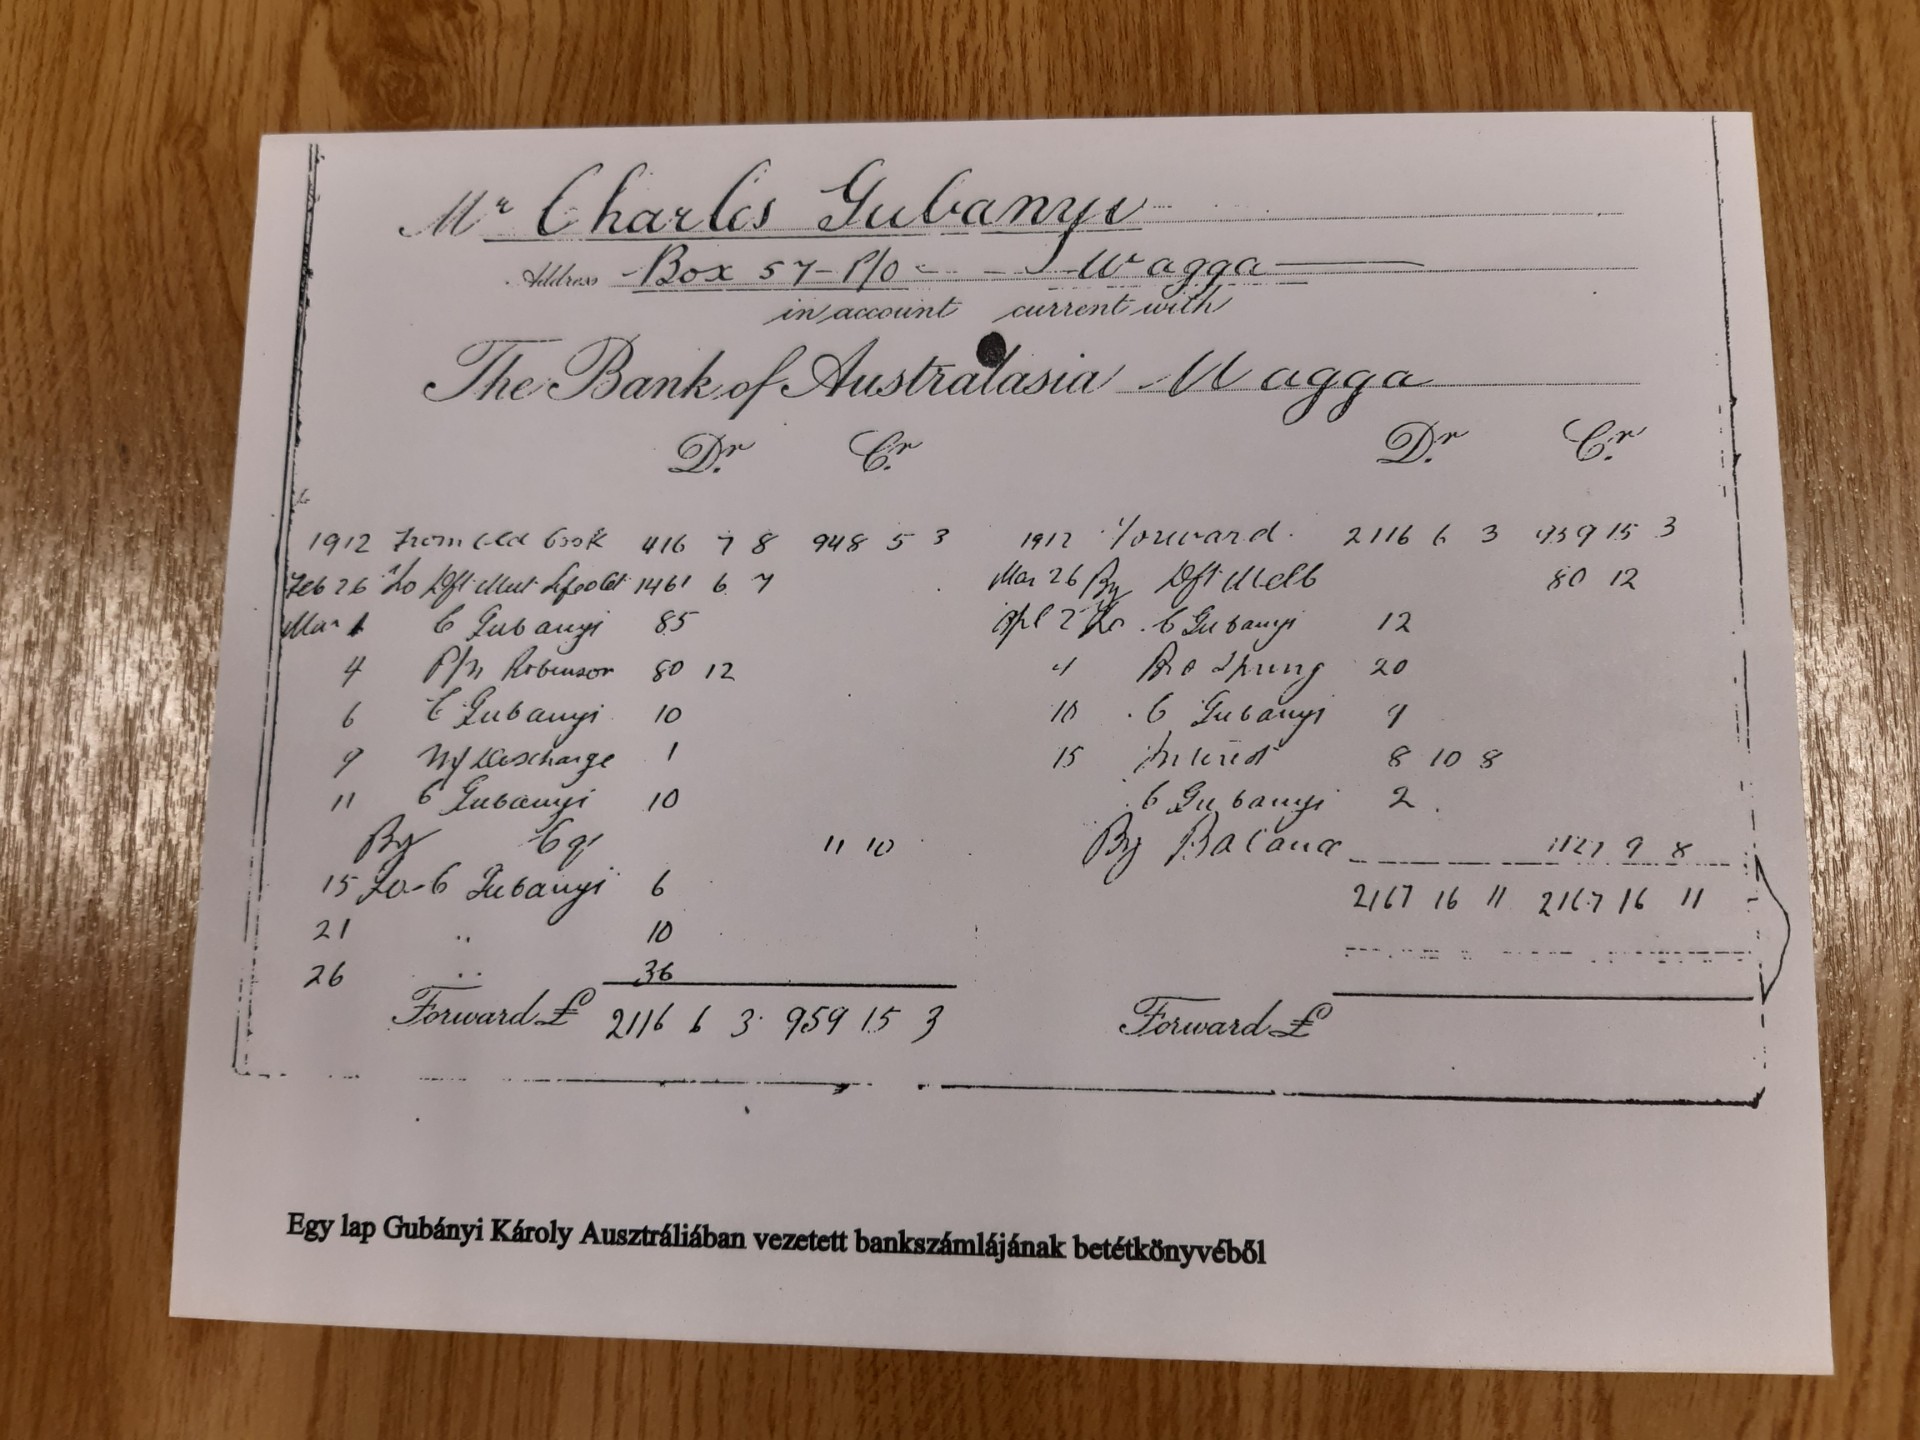 Mr Charles Gubanyi
Address Box 57 P/O Wagga
in account current with
The Bank of Australasia Wagga
Dr. Cr.
1912 From old book 416 7 8 948 5 3
Feb 26 To Dft 1461 6 7
Mar 1 C Gubanyi 85
4 P/n Robinson 80 12
6 C Gubanyi 10
9 Discharge 1
11 C Gubanyi 10
By Cq 11 10
15 To C Gubanyi 6
21 " 10
26 " 36
Forward £ 2116 6 3 959 15 3
Dr. Cr.
1912 Forward 2116 6 3 959 15 3
Mar 26 By Dft Melb 80 12
Apl 2 To C Gubanyi 12
4 20
10 C Gubanyi 9
15 Interest 8 10 8
C Gubanyi 2
By Balance 1127 9 8
2167 16 11 2167 16 11
Forward £
Egy lap Gubányi Károly Ausztráliában vezetett bankszámlájának betétkönyvéből